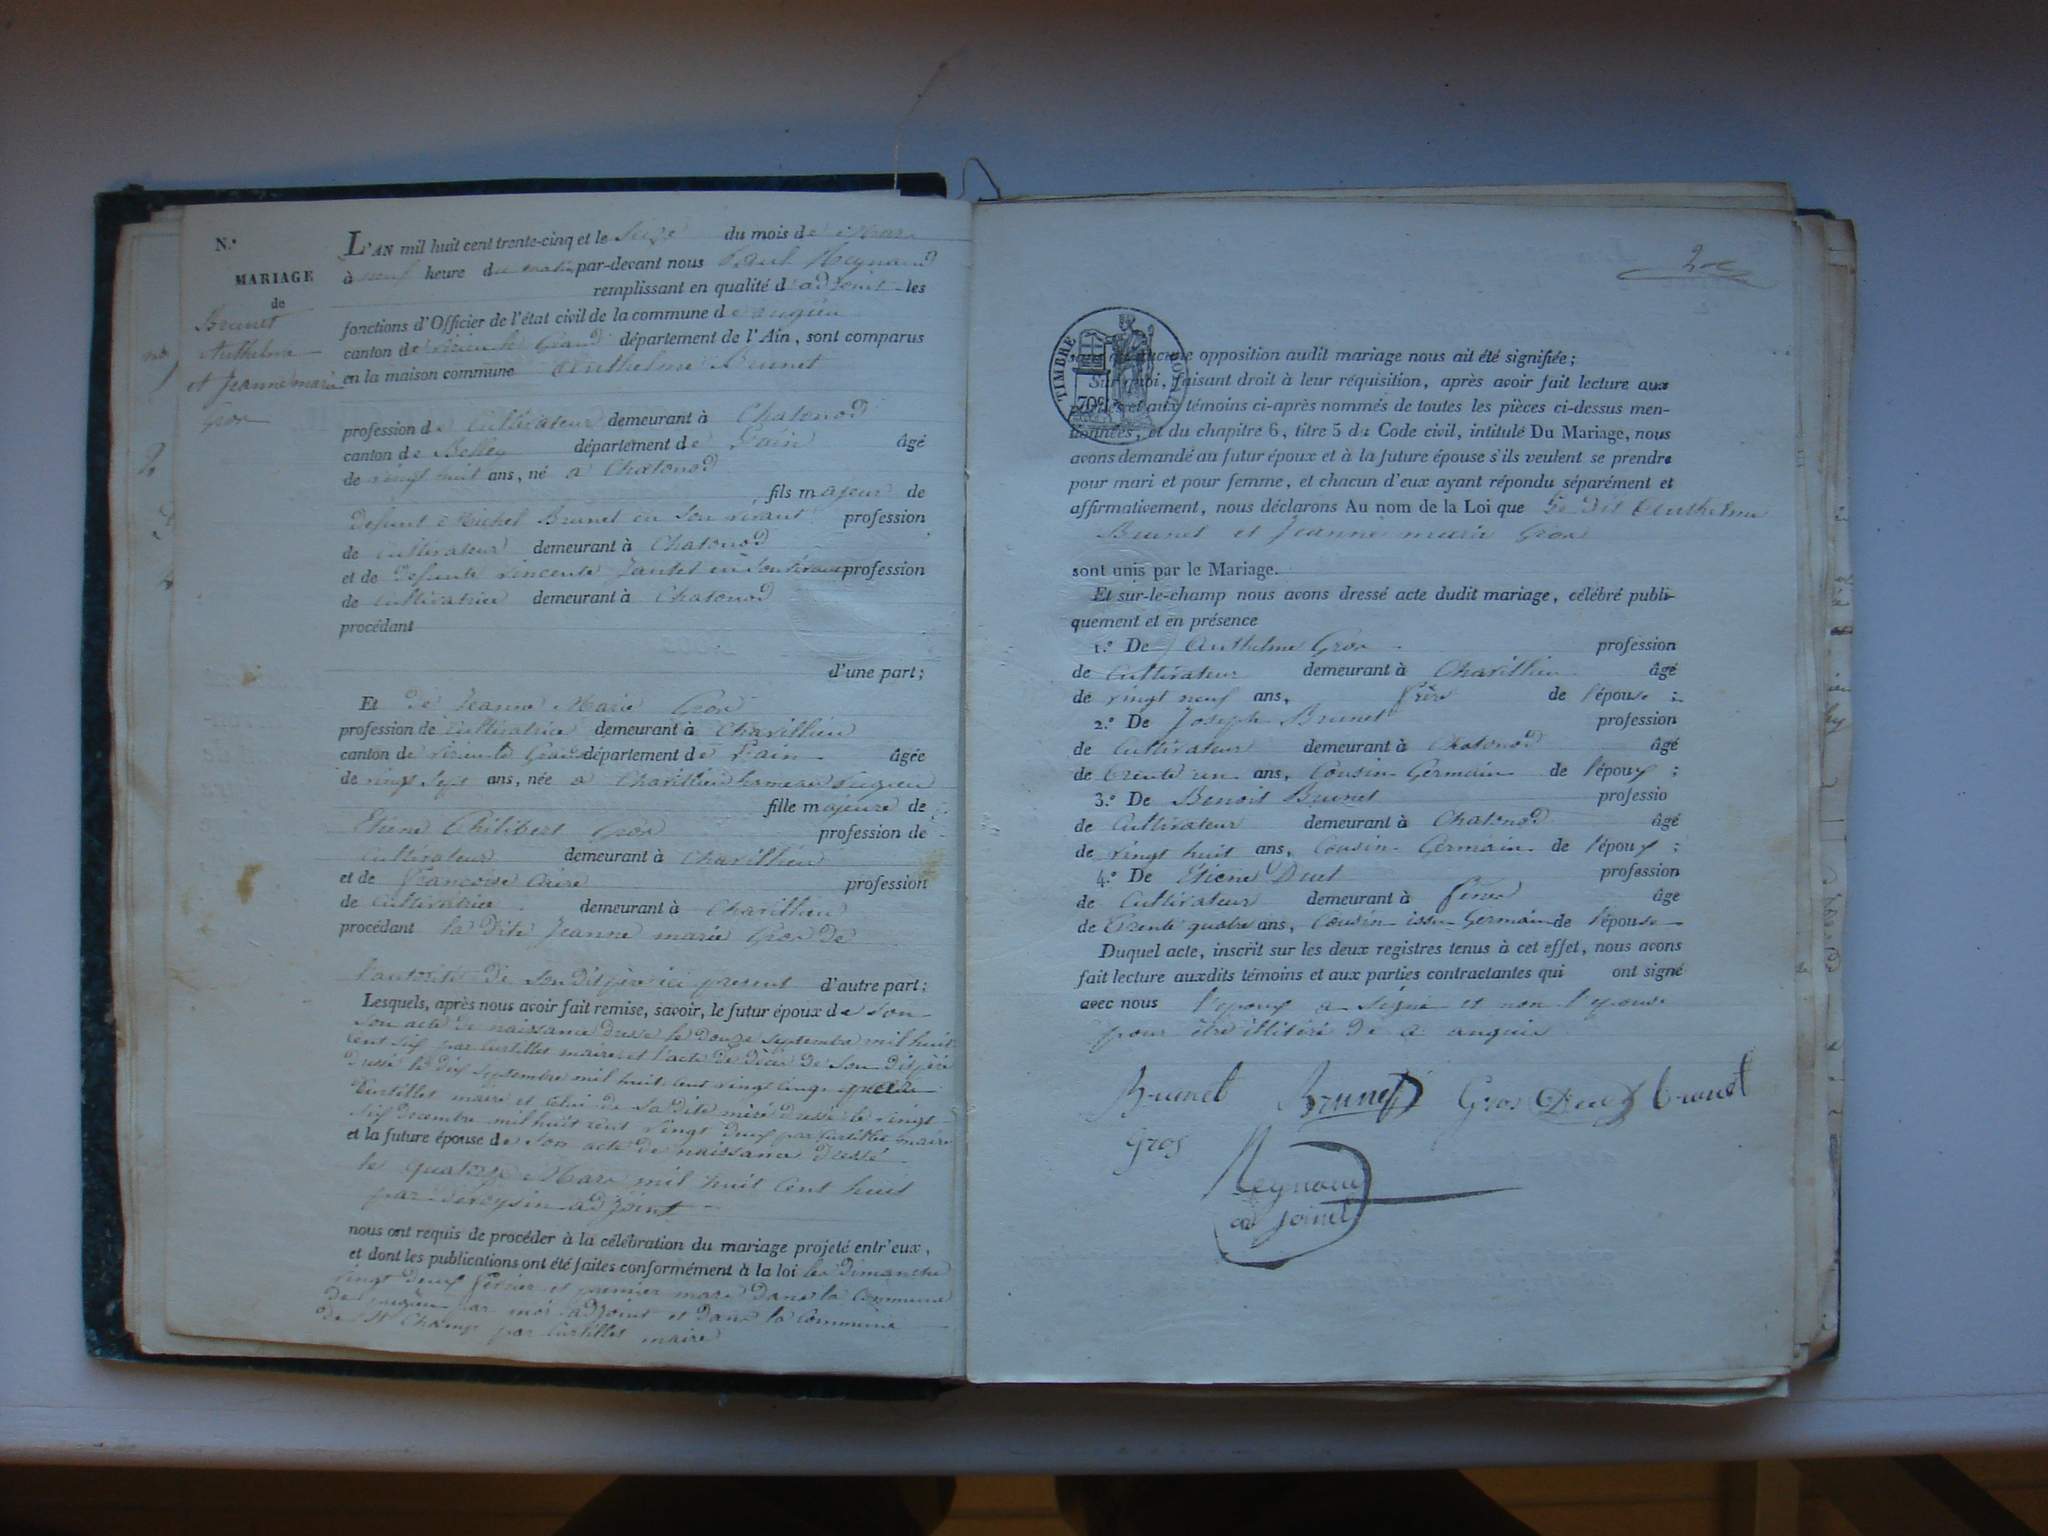 N.°
MARIAGE
de
Brunet
Anthelme
et Jeanne marie
Gros
L'AN mil huit cent trente-cinq et le Seize du mois de Mars
à neuf heure du matin par-devant nous Paul Reynaud
remplissant en qualité d'adjoint les
fonctions d'Officier de l'état civil de la commune de Pugieu
canton de virieu le Grand département de l'Ain, sont comparus
en la maison commune Anthelme Brunet
profession de Cultivateur demeurant à Chatonod
canton de Belley département de l'ain âgé
de vingt huit ans, né à Chatonod
fils majeur de
défunt Michel Brunet en son vivant profession
de Cultivateur demeurant à Chatonod
et de defunte vincente Jantet en son vivant profession
de Cultivatrice demeurant à Chatonod
procédant
d'une part;
Et de Jeanne Marie Gros
profession de Cultivatrice demeurant à Chavillieu
canton de virieu le Grand département de l'ain âgée
de vingt Sept ans, née à Chavillieu hameau Pugieu
fille majeure de
Etiene Philibert Gros profession de
Cultivateur demeurant à Chavillieu
et de Francoise profession
de Cultivatrice demeurant à Chavillieu
procédant la dite Jeanne marie Gros de
l'autorité de Son dit père ici present d'autre part;
Lesquels, après nous avoir fait remise, savoir, le futur époux de Son
Son acte de naissance dressé le douze Septembre mil huit
Cent Six par Curtillet maire et l'acte de décès de Son dit père
dressé le dix Septembre mil huit Cent vingt Cinq par
Curtillet maire et Celui de Sa dite mère dressé le vingt
Six decembre mil huit cent vingt deux par Curtillet maire
et la future épouse de Son acte de naissance dressé
le quatorze Mars mil huit Cent huit
par adjoint
nous ont requis de procéder à la célébration du mariage projeté entr'eux,
et dont les publications ont été faites conformément à la loi les Dimanche
vingt deux fevrier et premier mars dans la Commune
de pugieu par moi adjoint et dans la Commune
de St Champ par Curtillet maire
TIMBRE ROYAL
70c
sans qu'aucune opposition audit mariage nous ait été signifiée;
Sur quoi, faisant droit à leur réquisition, après avoir fait lecture aux
parties et aux témoins ci-après nommés de toutes les pièces ci-dessus men-
tionnées, et du chapitre 6, titre 5 du Code civil, intitulé Du Mariage, nous
avons demandé au futur époux et à la future épouse s'ils veulent se prendre
pour mari et pour femme, et chacun d'eux ayant répondu séparément et
affirmativement, nous déclarons Au nom de la Loi que Le dit Anthelme
Brunet et Jeanne marie Gros
sont unis par le Mariage.
Et sur-le-champ nous avons dressé acte dudit mariage, célébré publi-
quement et en présence
1.° De Anthelme Gros profession
de Cultivateur demeurant à Chavillieu âgé
de vingt neuf ans, frère de l'épouse;
2.° De Joseph Brunet profession
de Cultivateur demeurant à Chatonod âgé
de trente un ans, Cousin Germain de l'époux;
3.° De Benoit Brunet professio
de Cultivateur demeurant à Chatonod âgé
de vingt huit ans, Cousin Germain de l'époux;
4.° De Etiene Duet profession
de Cultivateur demeurant à âge
de trente quatre ans, Cousin issu Germain de l'épouse
Duquel acte, inscrit sur les deux registres tenus à cet effet, nous avons
fait lecture auxdits témoins et aux parties contractantes qui ont signé
avec nous l'epoux a Signé et non l'epouse
pour être illitéré de ce enquis
Brunet Brunet Gros Duet brunet
Gros
Reynaud
adjoint